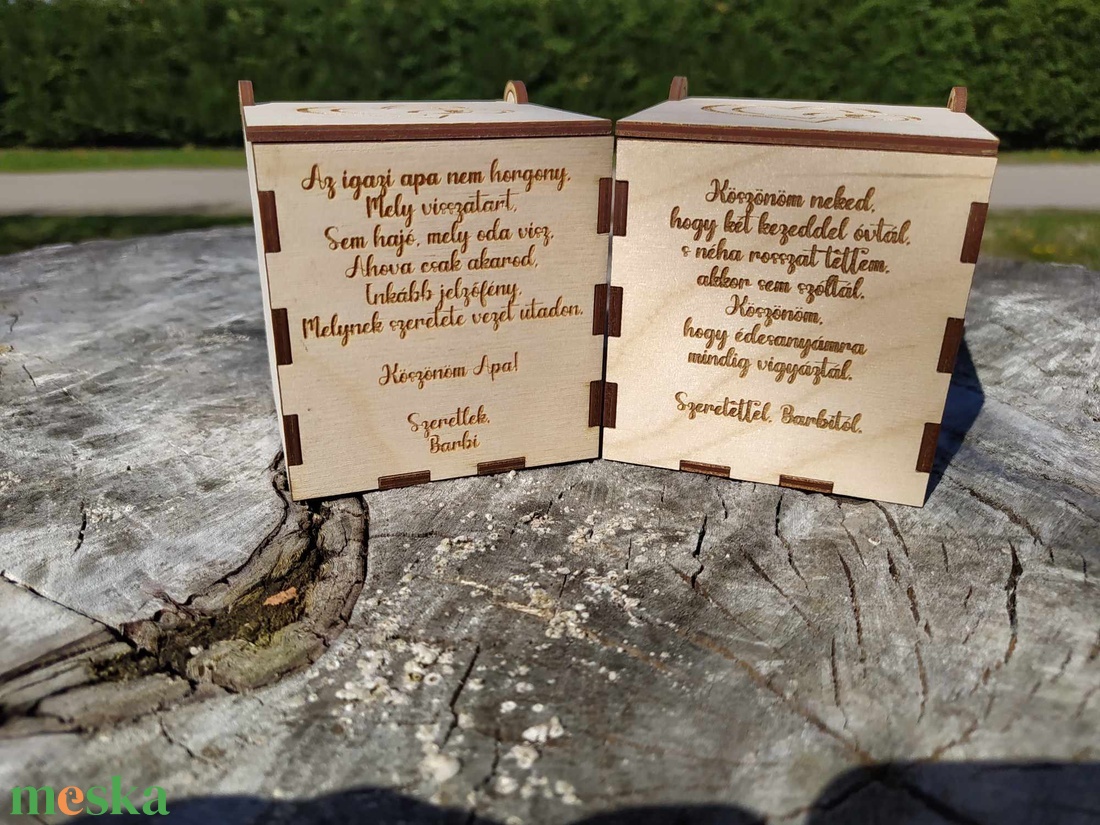 Az igazi apa nem horgony,
Mely visszatart,
Sem hajó, mely oda visz,
Ahova csak akarod,
Inkább jelzőfény,
Melynek szeretete vezet utadon.
Köszönöm Apa!
Szeretlek,
Barbi
Köszönöm neked,
hogy két kezeddel óvtál,
s néha rosszat tettem,
akkor sem szóltál.
Köszönöm,
hogy édesanyámra
mindig vigyáztál.
Szeretettel, Barbitól.
meska